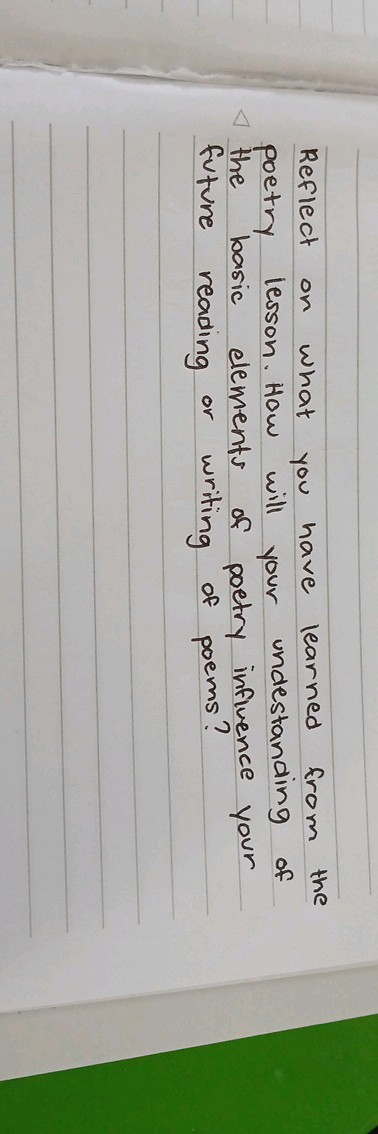 Reflect on what you have learned from the
poetry lesson. How will your undestanding of
the basic elements of poetry influence your
future reading or writing of poems?